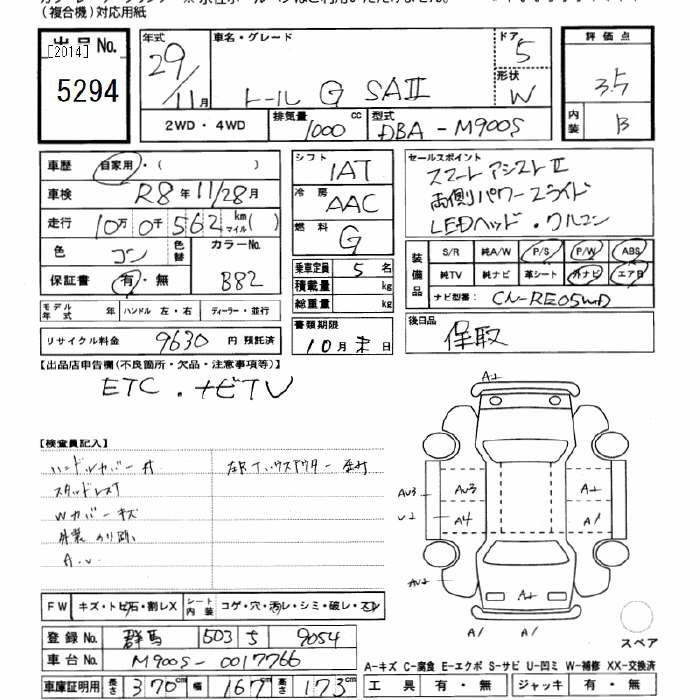 (複合機)対応用紙
出品No.
[2014]
5294
年式 29年 11月
車名・グレード
トール G SAⅡ
ドア 5
形状 W
評価点
3.5
内装 B
2WD・4WD
排気量 1000 cc
型式 DBA-M900S
車歴 自家用・( )
車検 R8年11/28月
走行 10万0千562 km マイル( )
色 コン
色替
カラーNo. B82
保証書 有・無
シフト 1AT
冷房 AAC
燃料 G
乗車定員 5名
積載量 kg
総重量 kg
書類期限
10月末日
セールスポイント
スマートアシストⅡ
両側パワースライド
LEDヘッド・クルコン
装備品
S/R 純A/W P/S P/W ABS
純TV 純ナビ 革シート 外ナビ エアB
ナビ型番: CN-RE05WD
モデル年式 年 ハンドル 左・右 ディーラー・並行
リサイクル料金 9630 円 預託済
後日品 保取
【出品店申告欄(不良箇所・欠品・注意事項等)】
ETC.ナビTV
【検査員記入】
ハンドルカバー付
スタッドレスT
Wカバーキズ
A.U
A+
AU3 AU3 A+
U2 A4 A1
AU2 A+
A1 A1
スペア
FW キズ・トビ石・割レX
シート内装 コゲ・穴・汚レ・シミ・破レ・スレ
登録No. 群馬 503 5 9054
車台No. M900S-0017766
車庫証明用 長さ 370cm 幅 167cm 高さ 173cm
A-キズ C-腐食 E-エクボ S-サビ U-凹ミ W-補修 XX-交換済
工具 有・無 ジャッキ 有・無